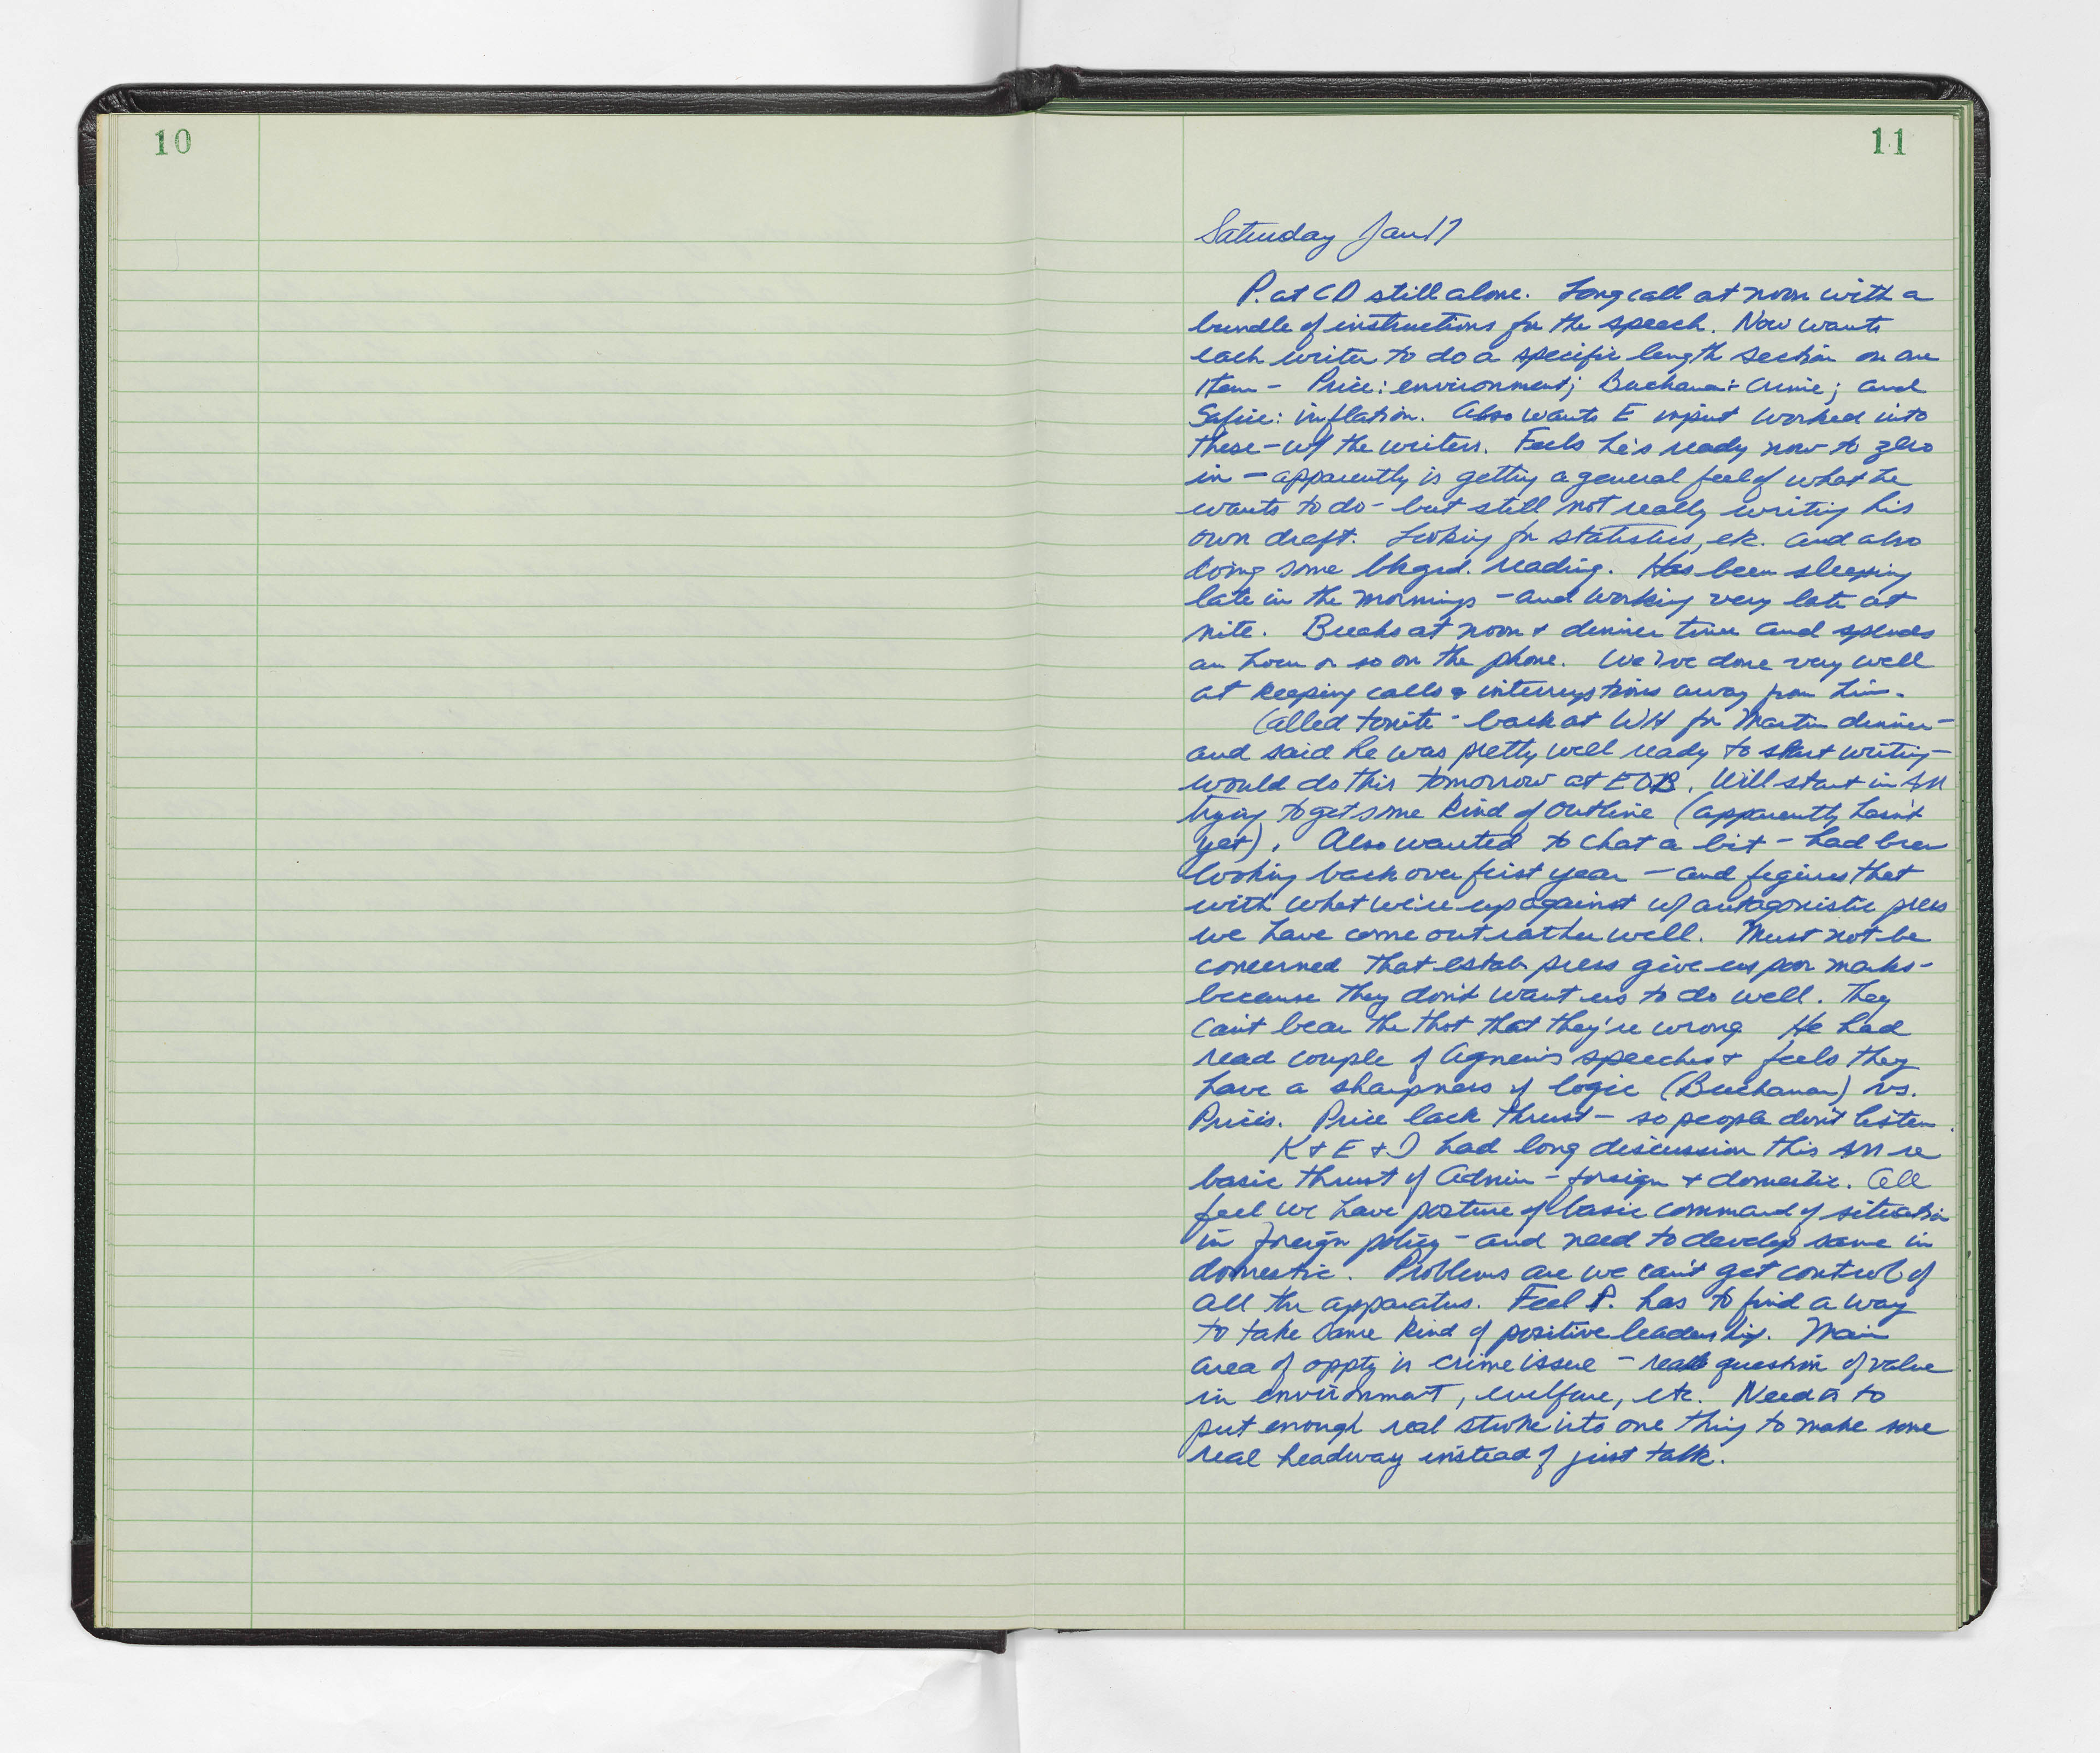 10
11
Saturday Jan 17
P. at CD still alone. Long call at noon with a
bundle of instructions for the speech. Now wants
each writer to do a specific length section on one
item - Price: environment; Buchanan: crime; and
Safire: inflation. Also wants E input worked into
these - w/ the writers. Feels he's ready now to zero
in - apparently is getting a general feel of what he
wants to do - but still not really writing his
own draft. Looking for statistics, etc. and also
doing some bkgrd. reading. Has been sleeping
late in the mornings - and working very late at
nite. Breaks at noon & dinner time and spends
an hour or so on the phone. We've done very well
at keeping calls & interruptions away from him.
Called tonite - back at WH for Martin dinner -
and said he was pretty well ready to start writing -
would do this tomorrow at EOB. Will start in AM
trying to get some kind of outline (apparently hasn't
yet). Also wanted to chat a bit - had been
looking back over first year - and figures that
with what we're up against w/ antagonistic press
we have come out rather well. Must not be
concerned that estab press give us poor marks -
because they don't want us to do well. They
can't bear the thot that they're wrong He had
read couple of Agnew's speeches & feels they
have a sharpness of logic (Buchanan) vs.
Price's. Price lack thrust - so people don't listen.
K & E & I had long discussion this AM re
basic thrust of Admin - foreign & domestic. All
feel we have posture of basic command of situation
in foreign policy - and need to develop same in
domestic. Problems are we can't get control of
all the apparatus. Feel P. has to find a way
to take same kind of positive leadership. Main
area of oppty is crime issue - real question of value
in environment, welfare, etc. Need is to
put enough real stroke into one thing to make some
real headway instead of just talk.